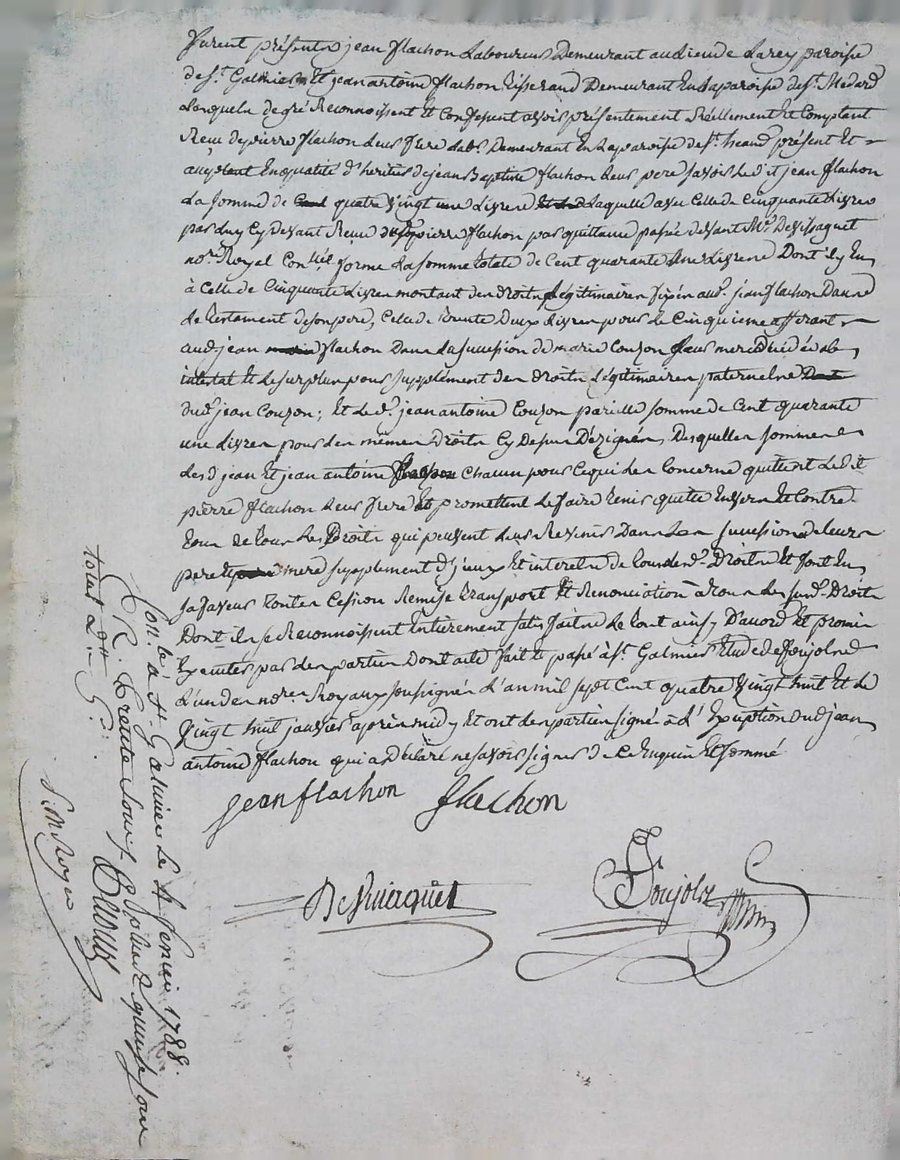 furent présents jean flachon Laboureur Demeurant au Lieu de Larey paroisse
de St. Galmier Et jean antoine flachon tisserand Demeurant En La paroisse de St. Medard
Lesquels de gré Reconnoissent Et Confessent avoir présentement Réellement Et Comptant
Reçu de pierre flachon Leur frere Labr. Demeurant En La paroisse de St. présent Et
acceptant En qualité d'heritier de jean Baptiste flachon Leur pere savoir Le dit jean flachon
La somme de quatre Vingt une Livres Laquelle avec Celle de Cinquante Livres
par Luy Cy Devant Reçue dud. pierre flachon par quittance passée devant Me.
nore. Royal forme La somme totale de Cent quarante Une Livres Dont il y En
à Celle de Cinquante Livres montant des Droits Légitimaires fixés aud. jean flachon Dans
Le testament de son pere, Celle de trente Deux Livres pour Le Cinquieme afférant
aud. jean flachon Dans La succession de marie Couzon Leur mere Décédée ab
intestat Et Le surplus pour supplément des Droits Légitimaires paternels
dud. jean Couzon; Et Led. jean antoine Couzon pareille somme de Cent quarante
une Livres pour Les mêmes Droits Cy Dessus Dézignés, Desquelles sommes
Les d. jean Et jean antoine flachon Chacun pour Ce qui Les Concerne quittent Le dit
pierre flachon Leur frere Et promettent Le faire tenir quitte Envers Et Contre
tous de tous Les Droits qui peuvent Leur Revenir Dans Les successions de Leurs
pere Et mere supplement d'yceux Et interets de tous Lesd. Droits Et font En
sa faveur toutes Cession Remise transport Et Renonciation à tous Les susd. Droits
Dont ils se Reconnoissent Entièrement satisfaits de tout ainsy D'accord Et promis
Executer par Les parties Dont acte fait Et passé à St. Galmier Etude de
L'un des nores. Royaux soussignés L'an mil sept Cent quatre Vingt huit Et Le
Vingt huit janvier après midy Et ont Les parties signé à L'Exception dud. jean
antoine flachon qui a Déclaré ne savoir signer De Ce Enquis Et sommé
jean flachon flachon
Conlé. à St. Galmier Le 4 fevrier 1788.
R. trente sous